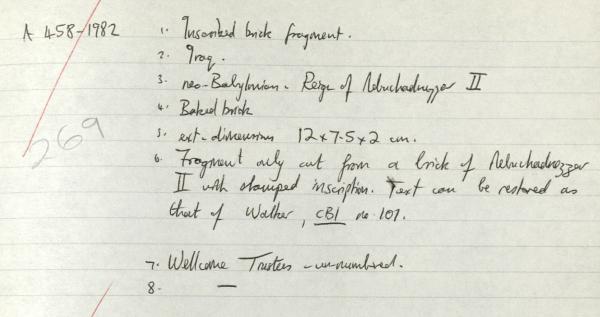 A 458-1982
1. Inscribed brick fragment.
2. Iraq.
3. neo-Babylonian - Reign of Nebuchadnezzar II
4. Baked brick
5. ext. dimensions 12 x 7.5 x 2 cm.
6. Fragment only cut from a brick of Nebuchadnezzar
II with stamped inscription. Text can be restored as
that of Walker, CBI no 101.
269
7. Wellcome Trustees - un-numbered.
8. —